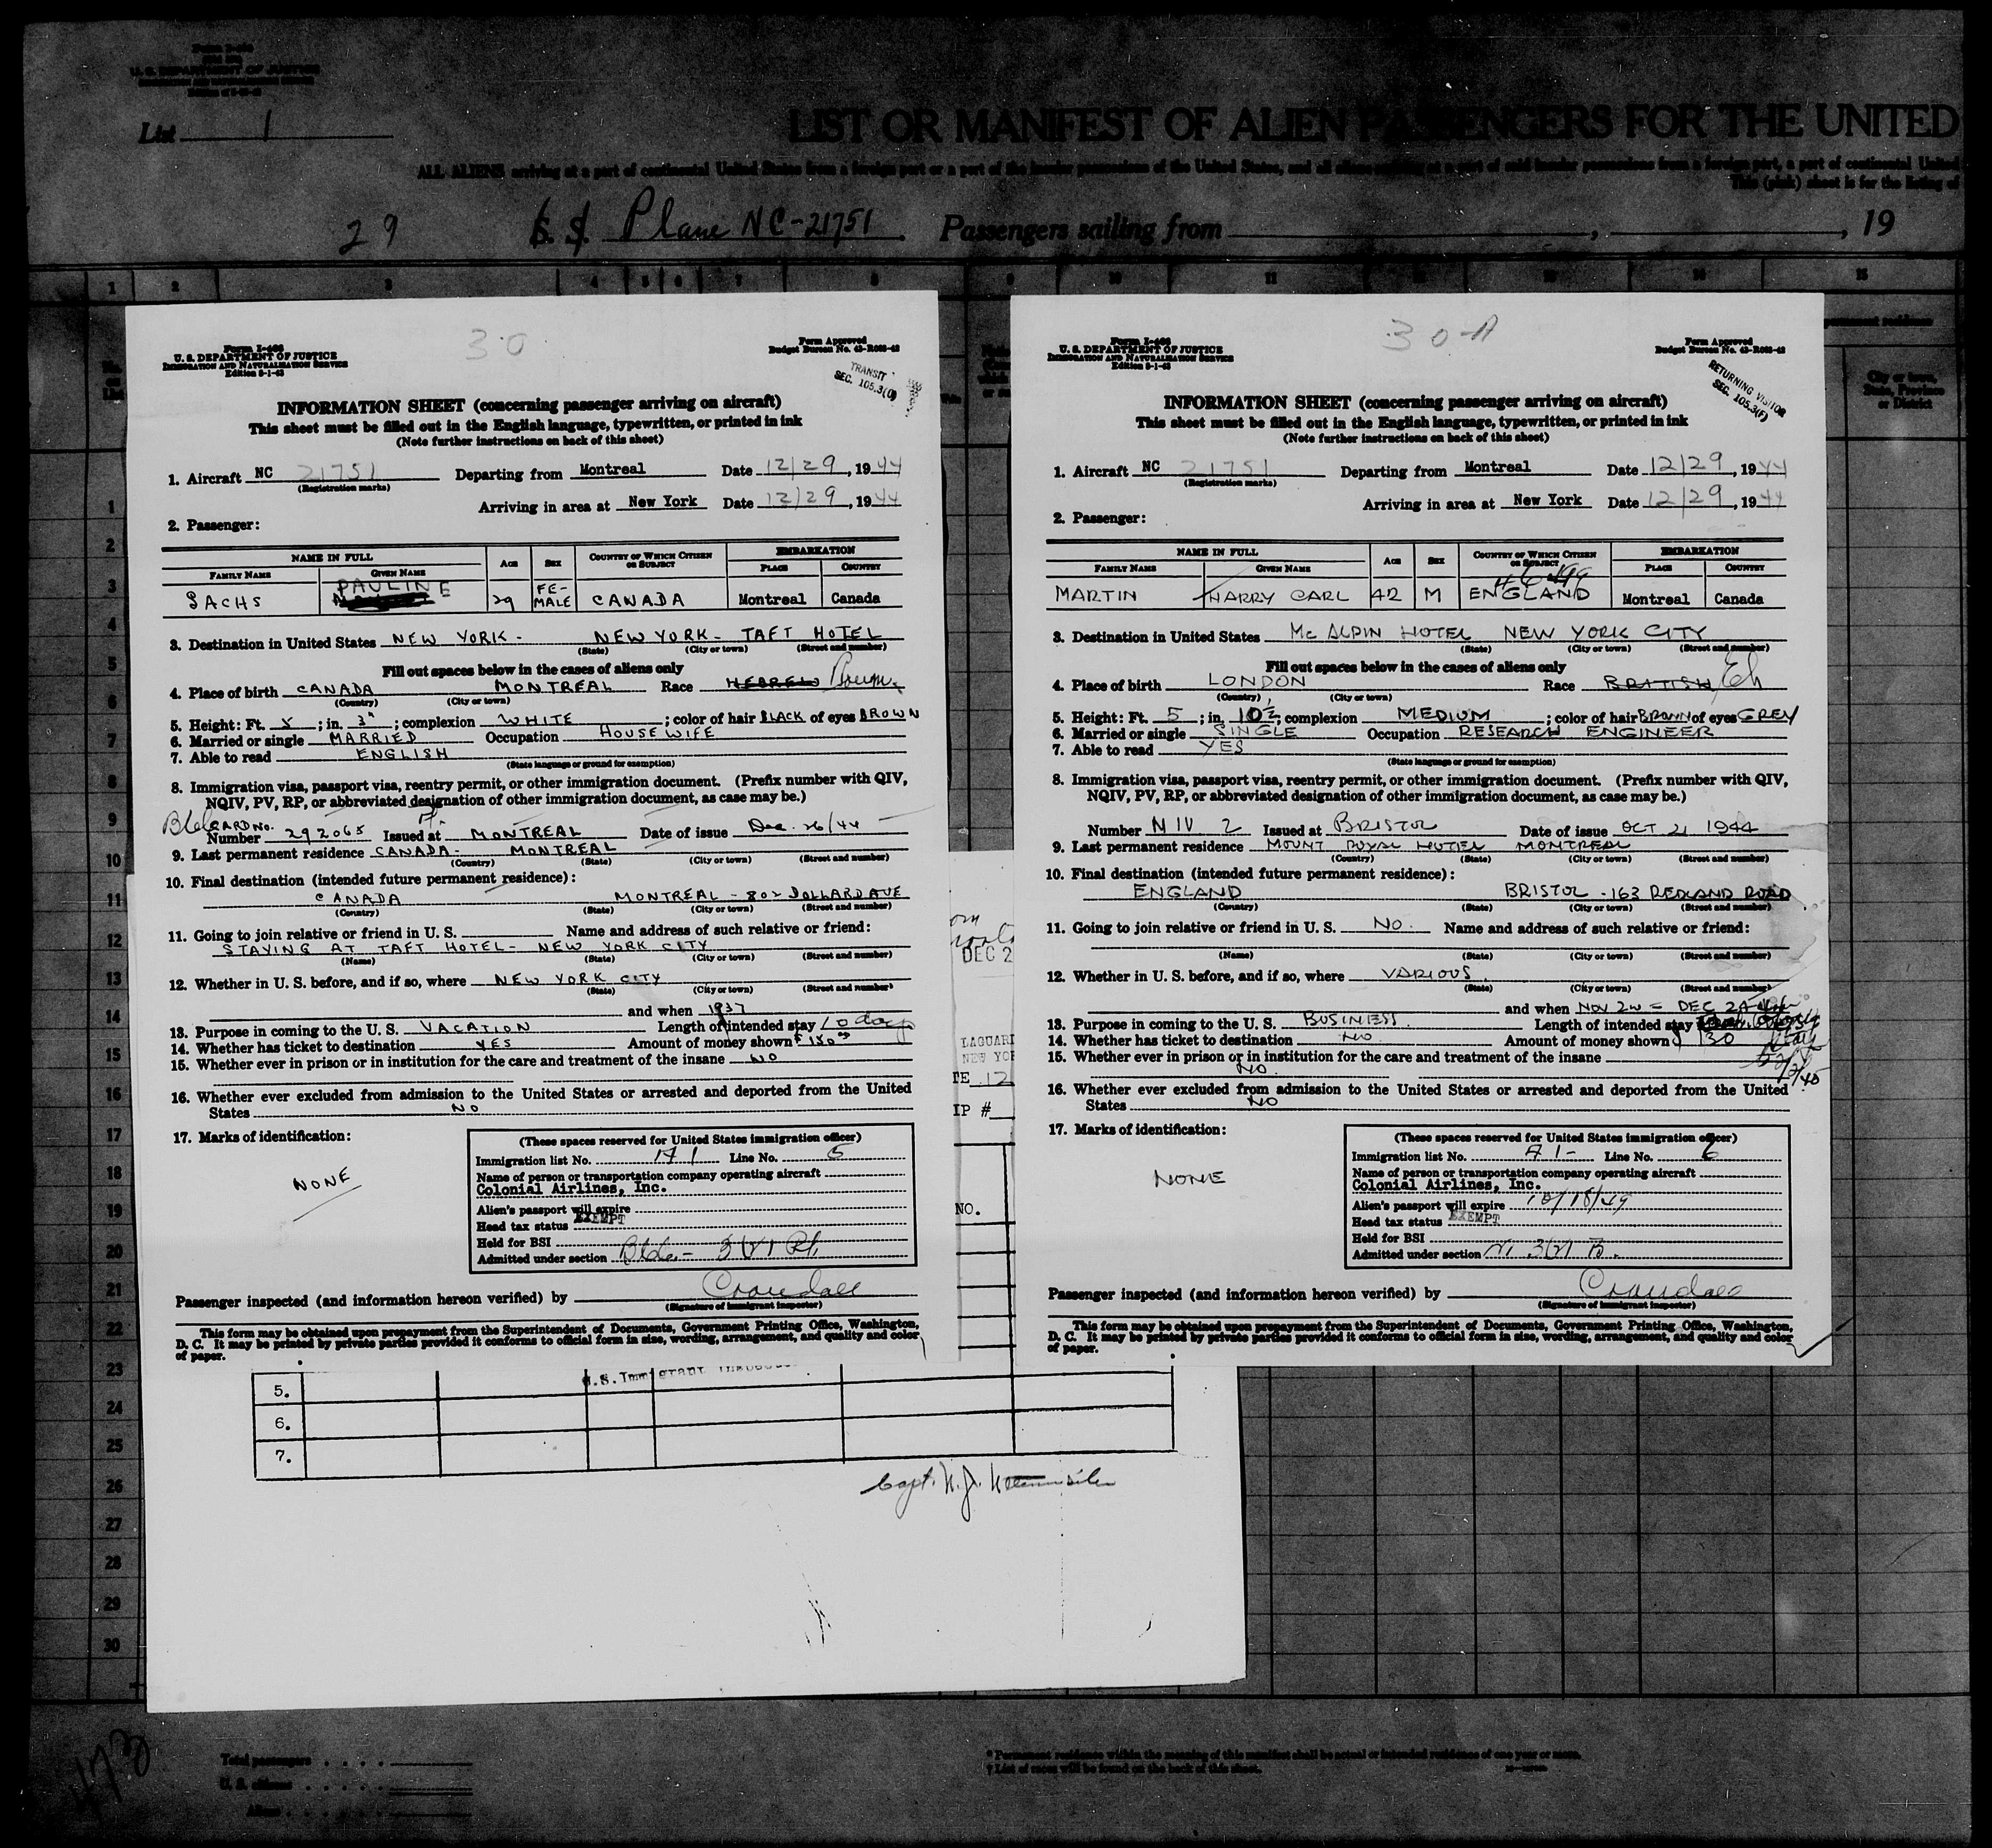 List 1
LIST OR MANIFEST OF ALIEN PASSENGERS FOR THE UNITED
ALL ALIENS arriving at a port of continental United States from a foreign port or a port of the insular possessions of the United States, and all aliens arriving at a port of said insular possessions from a foreign port, a port of continental United
This (pink) sheet is for the listing of
29 S. S. Plane NC-21751. Passengers sailing from , , 19
30
Form I-466
U. S. DEPARTMENT OF JUSTICE
IMMIGRATION AND NATURALIZATION SERVICE
Edition 5-1-43
Form Approved
Budget Bureau No. 43-R065-42
TRANSIT
SEC. 105.3(C)
INFORMATION SHEET (concerning passenger arriving on aircraft)
This sheet must be filled out in the English language, typewritten, or printed in ink
(Note further instructions on back of this sheet)
1. Aircraft NC 21751 Departing from Montreal Date 12/29, 1944
(Registration marks)
Arriving in area at New York Date 12/29, 1944
2. Passenger:
NAME IN FULL AGE SEX COUNTRY OF WHICH CITIZEN OR SUBJECT EMBARKATION
FAMILY NAME GIVEN NAME PLACE COUNTRY
SACHS PAULINE 29 FE-MALE CANADA Montreal Canada
3. Destination in United States NEW YORK - NEW YORK - TAFT HOTEL
(State) (City or town) (Street and number)
Fill out spaces below in the cases of aliens only
4. Place of birth CANADA MONTREAL Race HEBREW
(Country) (City or town)
5. Height: Ft. 5; in. 3"; complexion WHITE; color of hair BLACK of eyes BROWN
6. Married or single MARRIED Occupation HOUSEWIFE
7. Able to read ENGLISH
(State language or ground for exemption)
8. Immigration visa, passport visa, reentry permit, or other immigration document. (Prefix number with QIV,
NQIV, PV, RP, or abbreviated designation of other immigration document, as case may be.)
CARD NO.
Number 292065 Issued at MONTREAL Date of issue Dec. 26/44
9. Last permanent residence CANADA - MONTREAL
(Country) (State) (City or town) (Street and number)
10. Final destination (intended future permanent residence):
CANADA MONTREAL - 802 DOLLARD AVE
(Country) (State) (City or town) (Street and number)
11. Going to join relative or friend in U. S. Name and address of such relative or friend:
STAYING AT TAFT HOTEL - NEW YORK CITY
(Name) (State) (City or town) (Street and number)
12. Whether in U. S. before, and if so, where NEW YORK CITY
(State) (City or town) (Street and number)
and when 1937
13. Purpose in coming to the U. S. VACATION Length of intended stay 10 days
14. Whether has ticket to destination YES Amount of money shown $150
15. Whether ever in prison or in institution for the care and treatment of the insane NO
16. Whether ever excluded from admission to the United States or arrested and deported from the United
States NO
17. Marks of identification:
NONE
(These spaces reserved for United States immigration officer)
Immigration list No. A 1 Line No. 5
Name of person or transportation company operating aircraft
Colonial Airlines, Inc.
Alien's passport will expire
Head tax status EXEMPT
Held for BSI
Admitted under section
Passenger inspected (and information hereon verified) by Crandall
(Signature of immigrant inspector)
This form may be obtained upon prepayment from the Superintendent of Documents, Government Printing Office, Washington,
D. C. It may be printed by private parties provided it conforms to official form in size, wording, arrangement, and quality and color
of paper.
30-A
Form I-466
U. S. DEPARTMENT OF JUSTICE
IMMIGRATION AND NATURALIZATION SERVICE
Edition 5-1-43
Form Approved
Budget Bureau No. 43-R065-42
RETURNING VISITOR
SEC. 105.3(F)
INFORMATION SHEET (concerning passenger arriving on aircraft)
This sheet must be filled out in the English language, typewritten, or printed in ink
(Note further instructions on back of this sheet)
1. Aircraft NC 21751 Departing from Montreal Date 12/29, 1944
(Registration marks)
Arriving in area at New York Date 12/29, 1944
2. Passenger:
NAME IN FULL AGE SEX COUNTRY OF WHICH CITIZEN OR SUBJECT EMBARKATION
FAMILY NAME GIVEN NAME PLACE COUNTRY
MARTIN HARRY CARL 42 M ENGLAND Montreal Canada
3. Destination in United States McALPIN HOTEL NEW YORK CITY
(State) (City or town) (Street and number)
Fill out spaces below in the cases of aliens only
4. Place of birth LONDON Race BRITISH
(Country) (City or town)
5. Height: Ft. 5; in. 10½; complexion MEDIUM; color of hair BROWN of eyes GREY
6. Married or single SINGLE Occupation RESEARCH ENGINEER
7. Able to read YES
(State language or ground for exemption)
8. Immigration visa, passport visa, reentry permit, or other immigration document. (Prefix number with QIV,
NQIV, PV, RP, or abbreviated designation of other immigration document, as case may be.)
Number NIV 2 Issued at BRISTOL Date of issue OCT 21 1944
9. Last permanent residence MOUNT ROYAL HOTEL MONTREAL
(Country) (State) (City or town) (Street and number)
10. Final destination (intended future permanent residence):
ENGLAND BRISTOL - 163 REDLAND ROAD
(Country) (State) (City or town) (Street and number)
11. Going to join relative or friend in U. S. NO. Name and address of such relative or friend:
(Name) (State) (City or town) (Street and number)
12. Whether in U. S. before, and if so, where VARIOUS
(State) (City or town) (Street and number)
and when NOV DEC
13. Purpose in coming to the U. S. BUSINESS. Length of intended stay
14. Whether has ticket to destination NO Amount of money shown $ 130
15. Whether ever in prison or in institution for the care and treatment of the insane
NO.
16. Whether ever excluded from admission to the United States or arrested and deported from the United
States NO
17. Marks of identification:
NONE
(These spaces reserved for United States immigration officer)
Immigration list No. A 1- Line No. 6
Name of person or transportation company operating aircraft
Colonial Airlines, Inc.
Alien's passport will expire 10/18/49
Head tax status EXEMPT
Held for BSI
Admitted under section
Passenger inspected (and information hereon verified) by Crandall
(Signature of immigrant inspector)
This form may be obtained upon prepayment from the Superintendent of Documents, Government Printing Office, Washington,
D. C. It may be printed by private parties provided it conforms to official form in size, wording, arrangement, and quality and color
of paper.
DEC 2
NO.
U.S. Immigrant
5.
6.
7.
473
Total passengers
U. S. citizens
Aliens
* Permanent residence within the meaning of this manifest shall be actual or intended residence of one year or more.
† List of races will be found on the back of this sheet.